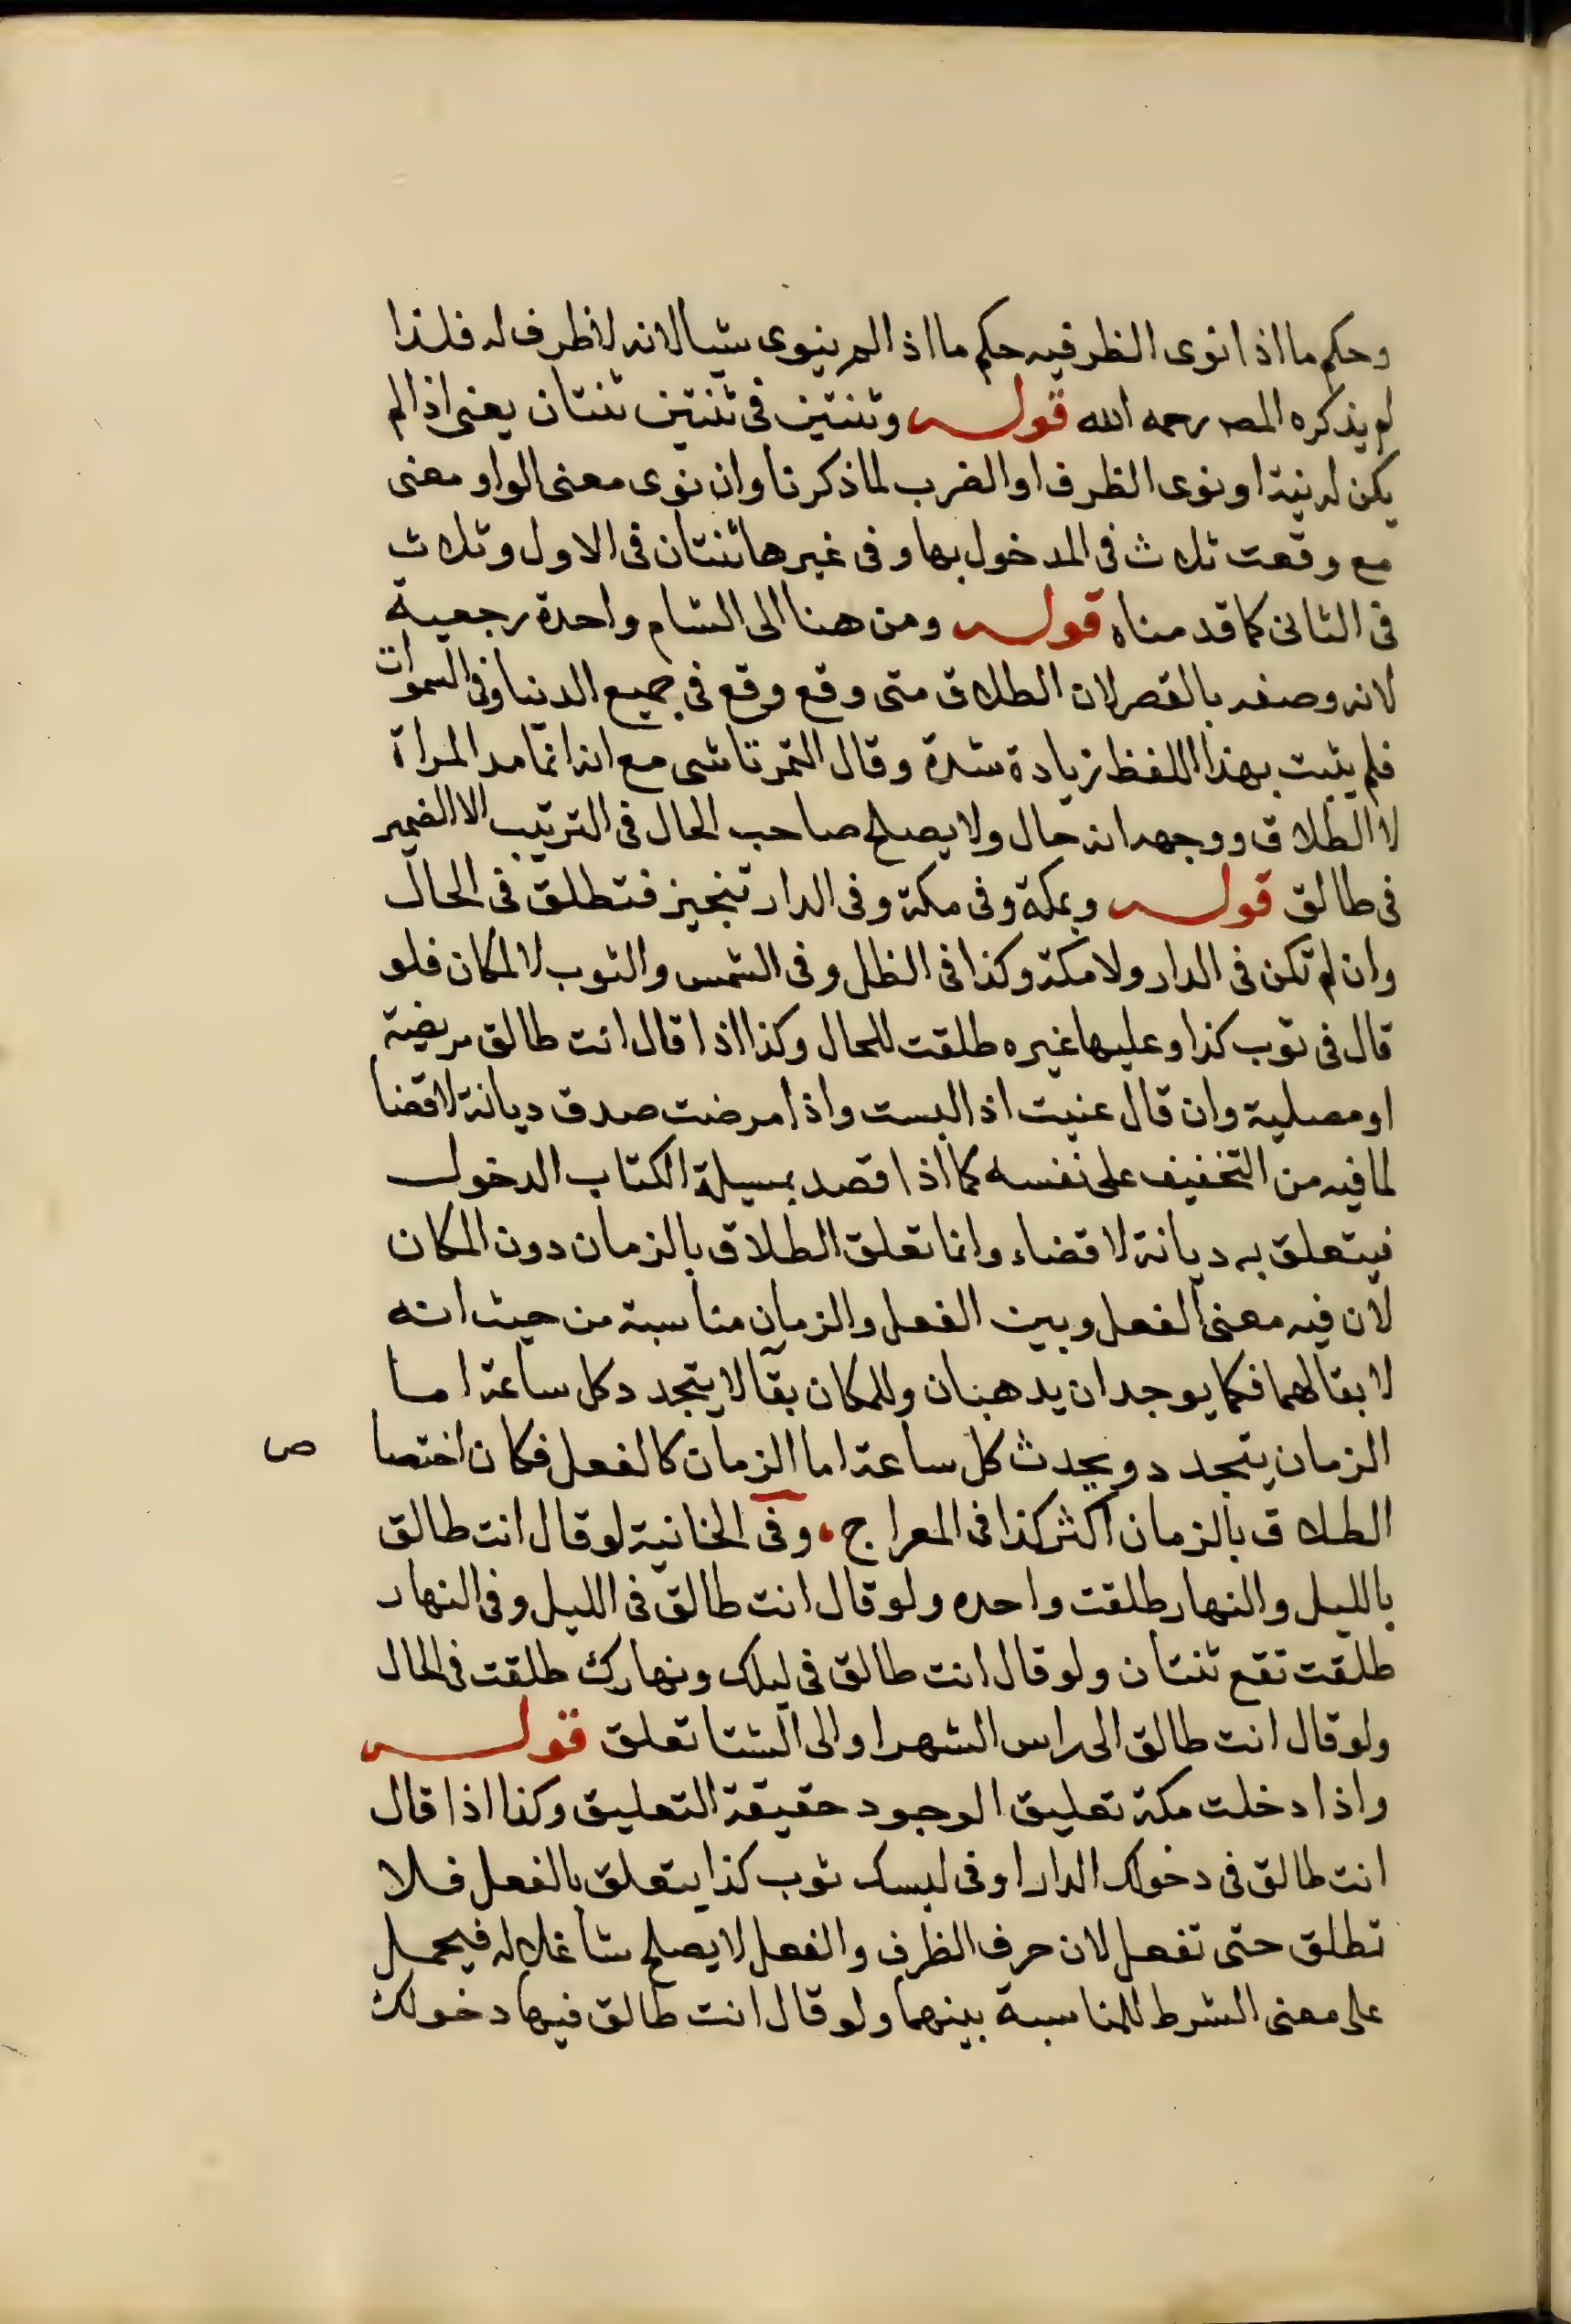 وحكم ما اذا نوى الظرفيه حكم ما اذا لم ينوى شيا لانه لاظرف له فلذا
لم يذكره المص رحمه الله قوله وثنتين فى ثنتين ثنتان يعنى اذا لم
يكن له نية او نوى الظرف او الضرب لما ذكرنا وان نوى معنى الواو معنى
مع وقعت ثلاث فى المدخول بها وفى غيرها ثنتان فى الاول وثلاث
فى الثانى كما قدمناه قوله ومن هنا الى الشام واحدة رجعية
لانه وصفه بالقصر لان الطلاق متى وقع وقع فى جميع الدنيا وفى السموات
فلم يثبت بهذا اللفظ زيادة شدة وقال التمرتاشى مع انه انما مد المراة
لا الطلاق ووجهه انه حال ولا يصلح صاحب الحال فى الترتيب الا الضمير
فى طالق قوله وبمكة وفى مكة وفى الدار تنجيز فتطلق فى الحال
وان لم تكن فى الدار ولا مكة وكذا فى الظل وفى الشمس والثوب لا لمكان فلو
قال فى ثوب كذا وعليها غيره طلقت للحال وكذا اذا قال انت طالق مريضة
او مصلية وان قال عنيت اذا لبست واذا مرضت صدق ديانة لا قضا
لما فيه من التخفيف على نفسه كما اذا قصد بمسيلة الكتاب الدخول
فيتعلق به ديانة لا قضاء وانما تعلق الطلاق بالزمان دون المكان
لان فيه معنى الفعل وبين الفعل والزمان مناسبة من حيث انه
لا بقا لهما فكما يوجدان يدهبنان وللمكان بقا لا يتجدد كل ساعة اما
الزمان يتجدد ويحدث كل ساعة اما الزمان كالفعل فكان اختصا ص
الطلاق بالزمان اكثر كذا فى المعراج وفى الخانية لو قال انت طالق
بالليل والنهار طلقت واحده ولو قال انت طالق فى الليل وفى النهار
طلقت تقع ثنتان ولو قال انت طالق فى ليلك ونهارك طلقت فى الحال
ولو قال انت طالق الى راس الشهر او الى الشتا تعلق قوله
واذا دخلت مكة تعليق الوجود حقيقة التعليق وكذا اذا قال
انت طالق فى دخولك الدار او فى لبسك ثوب كذا يتعلق بالفعل فلا
تطلق حتى تفعل لان حرف الظرف والفعل لا يصلح شاغلا له فيحمل
على معنى الشرط للمناسبة بينهما ولو قال انت طالق فيها دخولك